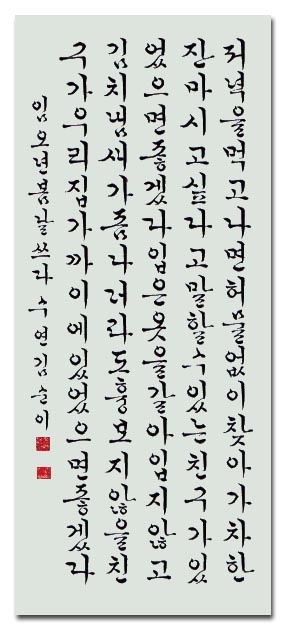 저녁을먹고나면허물없이찾아가차한
잔마시고싶다고말할수있는친구가있
었으면좋겠다입은옷을갈아입지않고
김치냄새가좀나더라도흉보지않을친
구가우리집가까이에있었으면좋겠다
임오년봄날쓰다 수연김순이